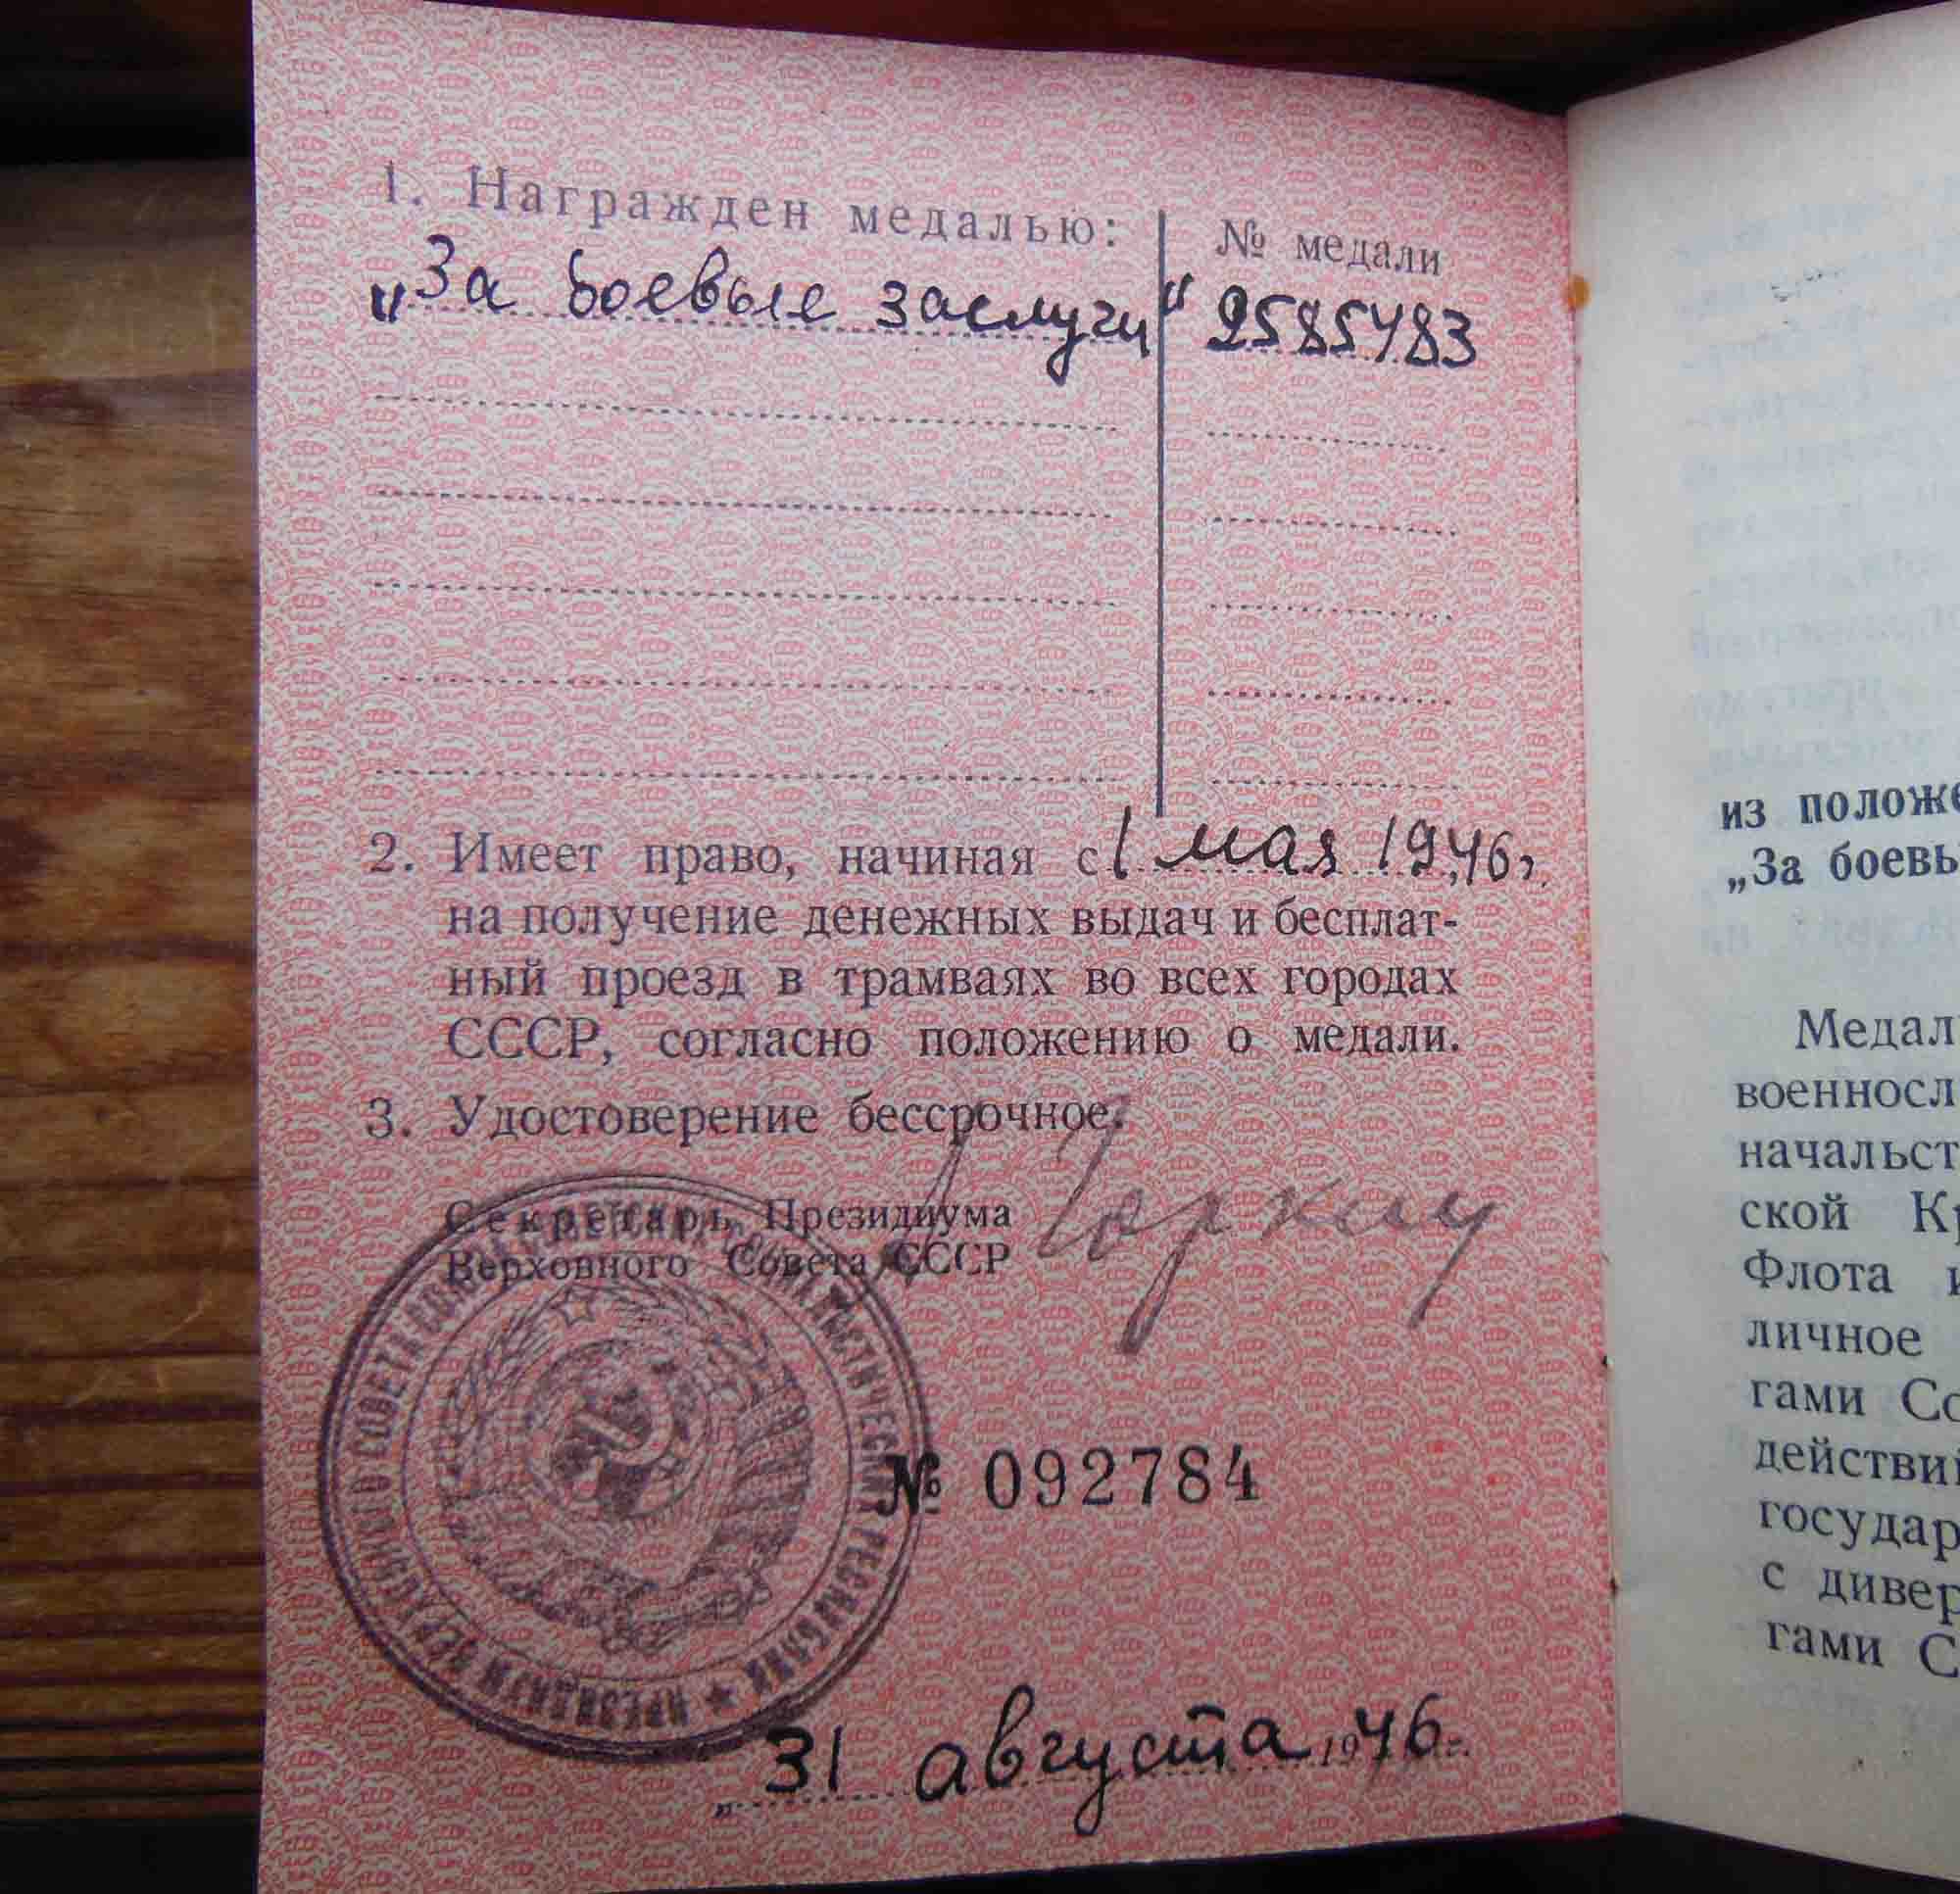 1. Награжден медалью:
№ медали
„За боевые заслуги“ 2585483
2. Имеет право, начиная с 1 мая 1946 г.
на получение денежных выдач и бесплат-
ный проезд в трамваях во всех городах
СССР, согласно положению о медали.
3. Удостоверение бессрочное.
Секретарь Президиума
Верховного Совета СССР
Горкин
ПРЕЗИДИУМ ВЕРХОВНОГО СОВЕТА СОЮЗА СОВЕТСКИХ СОЦИАЛИСТИЧЕСКИХ РЕСПУБЛИК
№ 092784
„31 августа 1946 г.
из положе
„За боевы
Медал
военносл
начальст
ской Кр
Флота и
личное
гами Со
действи
государ
с дивер
гами С